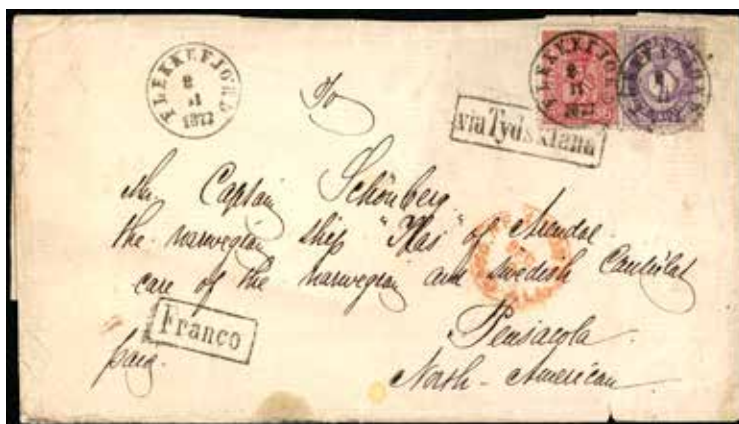 FLEKKEFJORD
8
11
1872
FLEKKEFJORD
8
11
1872
via Tydskland
To
Mr. Captain Schönberg
the norwegian ship "Has" of Arendal
care of the norwegian and swedish Consulat
Franco
Pensacola
paid.
North-American